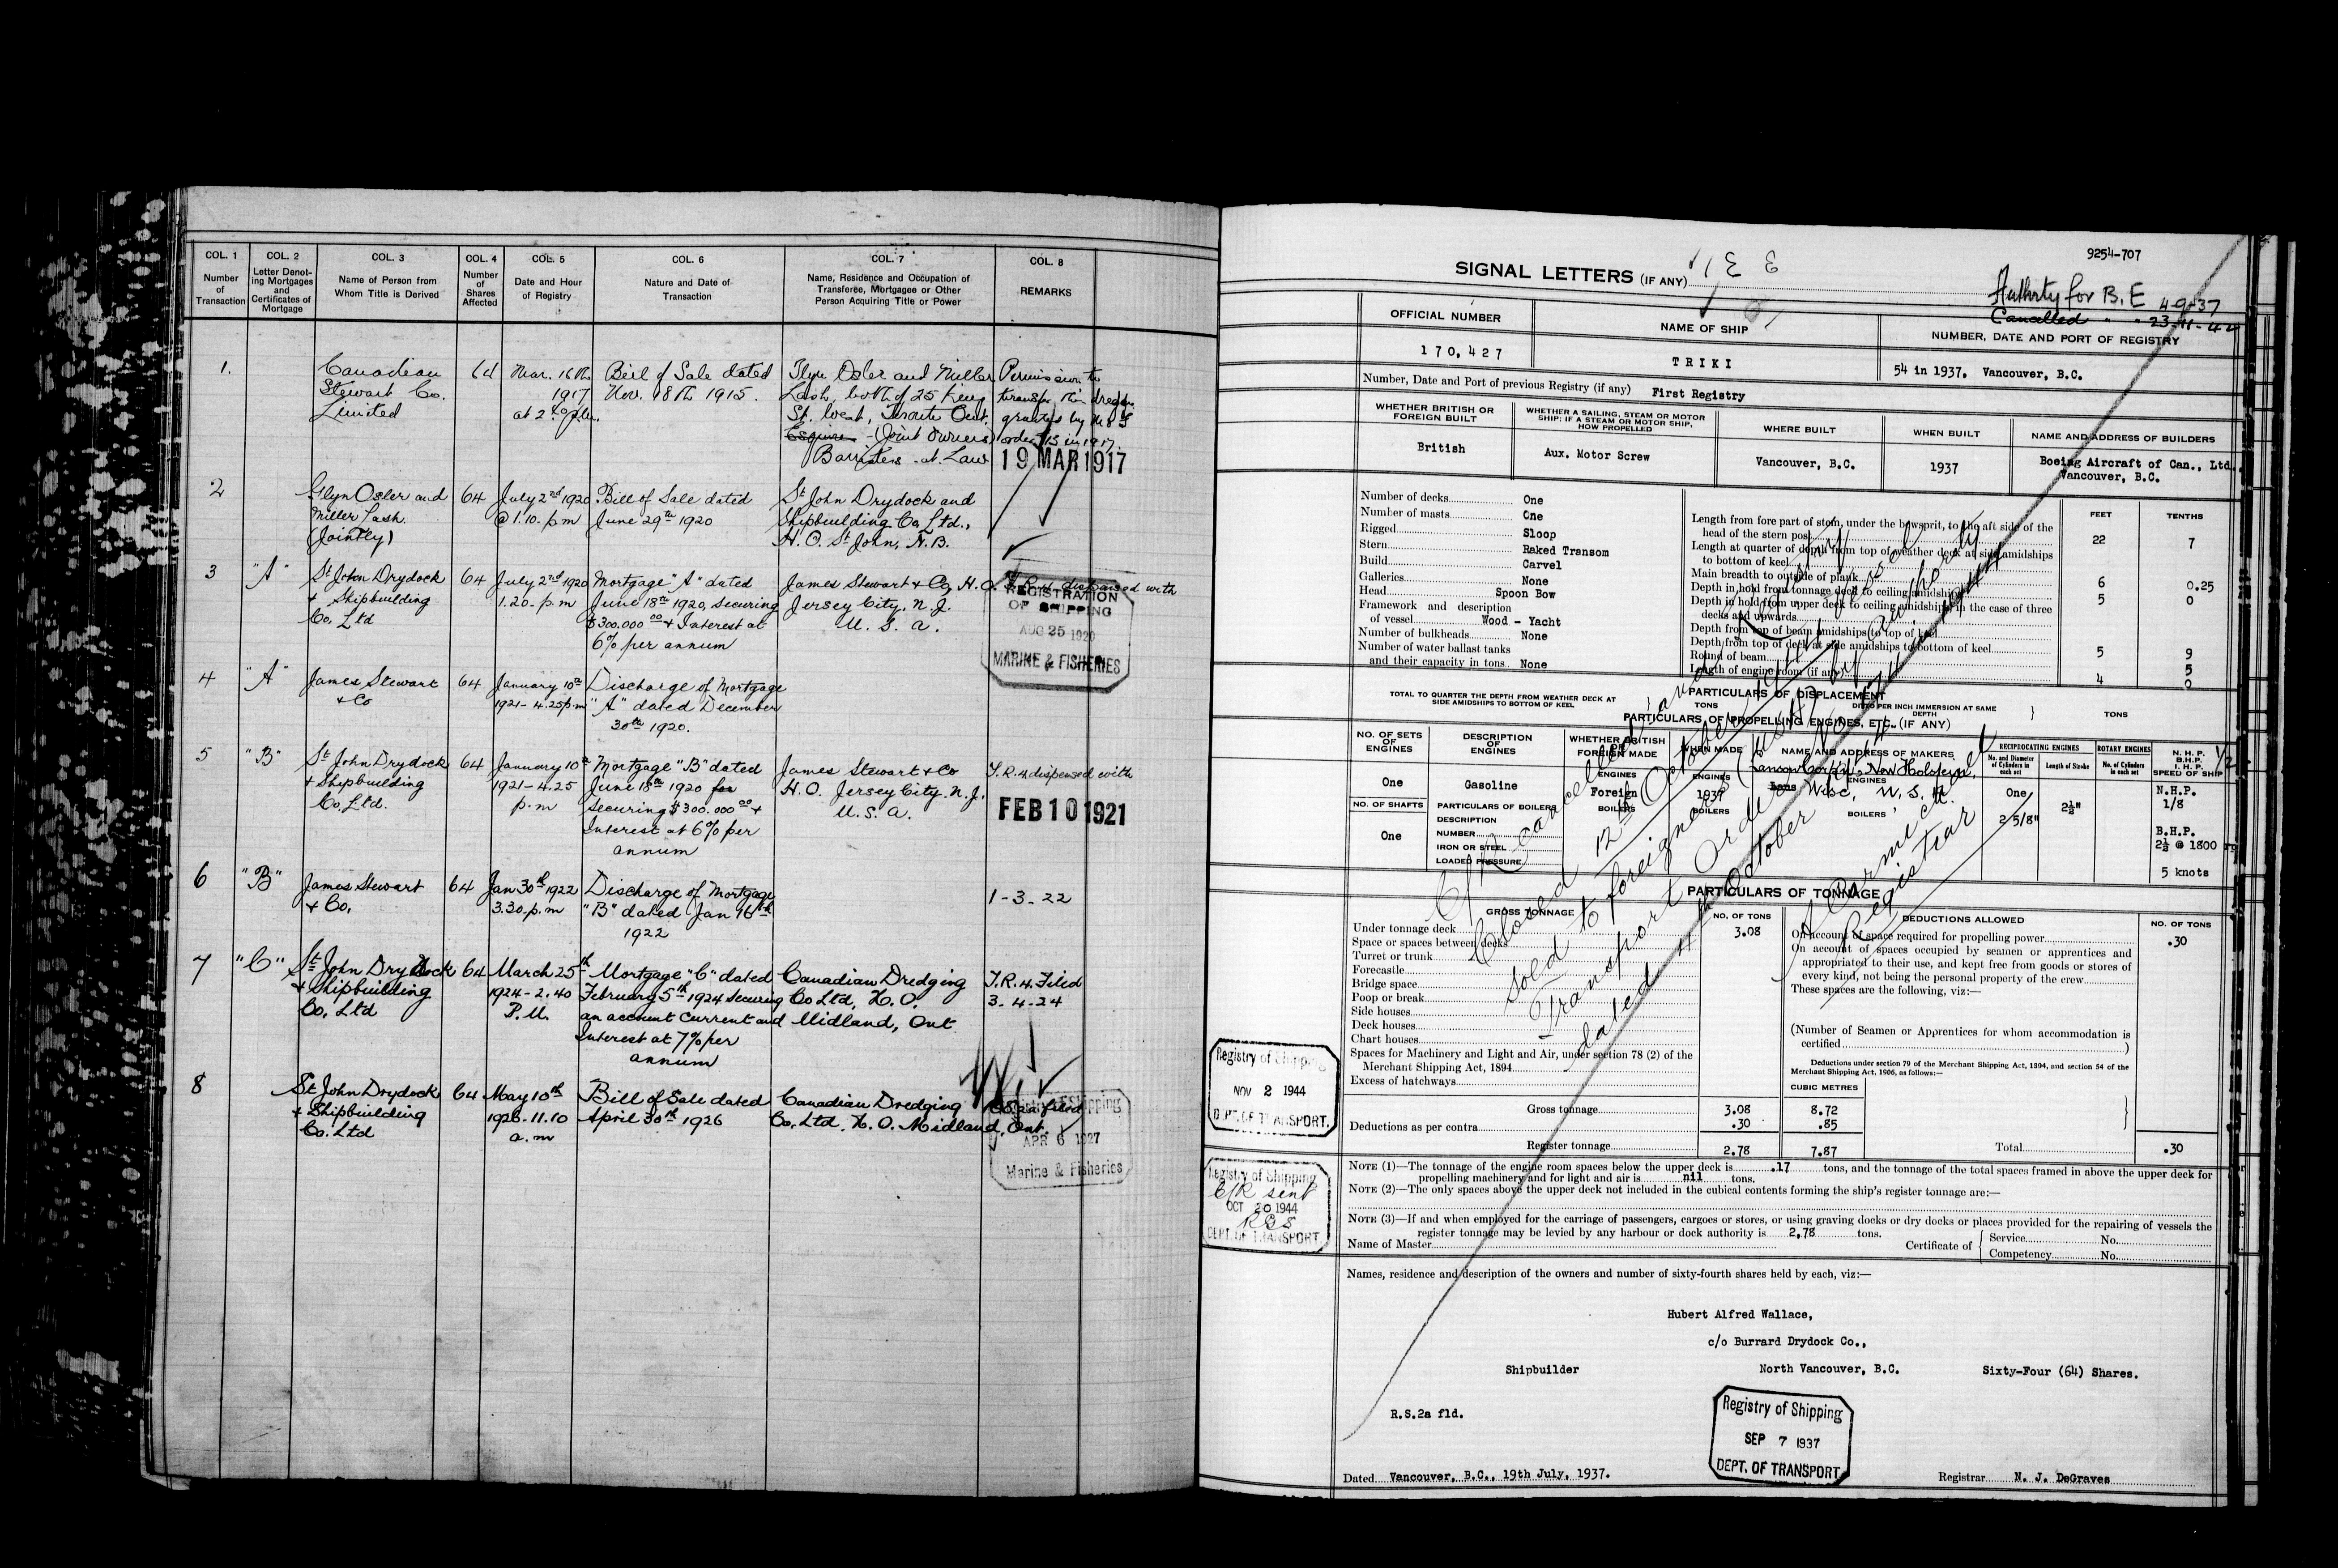 COL. 1
Number
of
Transaction
COL. 2
Letter Denot-
ing Mortgages
and
Certificates of
Mortgage
COL. 3
Name of Person from
Whom Title is Derived
COL. 4
Number
of
Shares
Affected
COL. 5
Date and Hour
of Registry
COL. 6
Nature and Date of
Transaction
COL. 7
Name, Residence and Occupation of
Transferee, Mortgagee or Other
Person Acquiring Title or Power
COL. 8
REMARKS
1.
Canadian
Stewart Co.
Limited
64
Mar. 16th
1917
at 2
Bill of Sale dated
Nov. 18th 1915.
Glyn Osler and Miller
Lash, both of 25 King
St. West, Toronto Ont.
Esquires - (Joint owners)
Barristers-at-Law
Permission to
transfer this dredge
granted by
order 15 in 1917.
19 MAR 1917
2
Glyn Osler and
Miller Lash.
(Jointly)
64
July 2nd 1920
@ 1.10. p.m
Bill of Sale dated
June 29th 1920
St John Drydock and
Shipbuilding Co. Ltd.,
H.O. St John, N.B.
3
"A"
St John Drydock
+ Shipbuilding
Co. Ltd
64
July 2nd 1920
1.20. p.m
Mortgage "A" dated
June 18th 1920, securing
$300.000 00 + Interest at
6% per annum
James Stewart + Co, H.O.
Jersey City. N.J.
U.S.A.
T.R.4. dispensed with
REGISTRATION
OF SHIPPING
AUG 25 1920
MARINE & FISHERIES
4
"A"
James Stewart
+ Co
64
January 10th
1921 - 4.25 p.m
Discharge of Mortgage
"A" dated December
30th 1920.
5
"B"
St John Drydock
+ Shipbuilding
Co. Ltd.
64
January 10th
1921 - 4.25
p.m
Mortgage "B" dated
June 18th 1920 for
securing $300.000 00 +
Interest at 6% per
annum
James Stewart + Co
H.O. Jersey City. N.J.
U.S.A.
T.R.4 dispensed with
FEB 10 1921
6
"B"
James Stewart
+ Co.
64
Jan 30th 1922
3.30. p.m
Discharge of Mortgage
"B" dated Jan 16th
1922
1-3-22
7
"C"
St. John Drydock
+ Shipbuilding
Co. Ltd
64
March 25th
1924 - 2.40
P.M.
Mortgage "C" dated
February 5th 1924 securing
an account current and
Interest at 7% per
annum
Canadian Dredging
Co Ltd, H.O.
Midland, Ont
T.R.4. Filed
3-4-24
8
St John Drydock
+ Shipbuilding
Co. Ltd
64
May 10th
1926 - 11.10
a.m
Bill of Sale dated
April 30th 1926
Canadian Dredging
Co. Ltd. H.O. Midland, Ont.
filed
APR 6 1927
Marine & Fisheries
9254-707
SIGNAL LETTERS (IF ANY)
Authrty for B.E 4-9-37
Cancelled " " 23-11-44
OFFICIAL NUMBER
170,427
NAME OF SHIP
TRIKI
NUMBER, DATE AND PORT OF REGISTRY
54 in 1937. Vancouver, B.C.
Number, Date and Port of previous Registry (if any) First Registry
WHETHER BRITISH OR
FOREIGN BUILT
British
WHETHER A SAILING, STEAM OR MOTOR
SHIP; IF A STEAM OR MOTOR SHIP,
HOW PROPELLED
Aux. Motor Screw
WHERE BUILT
Vancouver, B.C.
WHEN BUILT
1937
NAME AND ADDRESS OF BUILDERS
Boeing Aircraft of Can., Ltd.,
Vancouver, B.C.
Number of decks One
Number of masts One
Rigged Sloop
Stern Raked Transom
Build Carvel
Galleries None
Head Spoon Bow
Framework and description
of vessel Wood - Yacht
Number of bulkheads None
Number of water ballast tanks
and their capacity in tons None
FEET
TENTHS
Length from fore part of stem, under the bowsprit, to the aft side of the
head of the stern post 22 7
Length at quarter of depth from top of weather deck at side amidships
to bottom of keel
Main breadth to outside of plank 6 0.25
Depth in hold from tonnage deck to ceiling amidships 5 0
Depth in hold from upper deck to ceiling amidships, in the case of three
decks and upwards
Depth from top of beam amidships to top of keel
Depth from top of deck at side amidships to bottom of keel 5 9
Round of beam 5
Length of engine room (if any) 4 0
PARTICULARS OF DISPLACEMENT
TOTAL TO QUARTER THE DEPTH FROM WEATHER DECK AT
SIDE AMIDSHIPS TO BOTTOM OF KEEL
TONS
DITTO PER INCH IMMERSION AT SAME
DEPTH
TONS
PARTICULARS OF PROPELLING ENGINES, ETC. (IF ANY)
NO. OF SETS
OF
ENGINES
One
NO. OF SHAFTS
One
DESCRIPTION
OF
ENGINES
Gasoline
PARTICULARS OF BOILERS
DESCRIPTION
NUMBER
IRON OR STEEL
LOADED PRESSURE
WHETHER BRITISH
OR
FOREIGN MADE
ENGINES
Foreign
BOILERS
WHEN MADE
ENGINES
1937
BOILERS
NAME AND ADDRESS OF MAKERS
Lauson Corp'n. New Holstein,
ENGINES
Wisc, U.S.A.
BOILERS
RECIPROCATING ENGINES
No. and Diameter
of Cylinders in
each set
One
2 5/8"
Length of Stroke
2½"
ROTARY ENGINES
No. of Cylinders
in each set
N.H.P.
B.H.P.
I.H.P.
SPEED OF SHIP
1/2
N.H.P.
1/8
B.H.P.
2½ @ 1800
5 knots
PARTICULARS OF TONNAGE
GROSS TONNAGE
NO. OF TONS
Under tonnage deck 3.08
Space or spaces between decks
Turret or trunk
Forecastle
Bridge space
Poop or break
Side houses
Deck houses
Chart houses
Spaces for Machinery and Light and Air, under section 78 (2) of the
Merchant Shipping Act, 1894
Excess of hatchways
Gross tonnage 3.08 8.72
Deductions as per contra .30 .85
Register tonnage 2.78 7.87
DEDUCTIONS ALLOWED
NO. OF TONS
On account of space required for propelling power .30
On account of spaces occupied by seamen or apprentices and
appropriated to their use, and kept free from goods or stores of
every kind, not being the personal property of the crew
These spaces are the following, viz:—
(Number of Seamen or Apprentices for whom accommodation is
certified )
Deductions under section 79 of the Merchant Shipping Act, 1894, and section 54 of the
Merchant Shipping Act, 1906, as follows:—
CUBIC METRES
Total .30
C/R cancelled and
Registry
of vessel
Closed 12th October 1944
Sold to foreigners (
by authority
Transport Order No.
dated 4th October 1944
A Carmichael
Registrar
NOTE (1)—The tonnage of the engine room spaces below the upper deck is .17 tons, and the tonnage of the total spaces framed in above the upper deck for
propelling machinery and for light and air is nil tons.
NOTE (2)—The only spaces above the upper deck not included in the cubical contents forming the ship's register tonnage are:—
NOTE (3)—If and when employed for the carriage of passengers, cargoes or stores, or using graving docks or dry docks or places provided for the repairing of vessels the
register tonnage may be levied by any harbour or dock authority is 2.78 tons.
Name of Master
Certificate of { Service No.
Competency No.
Registry of Shipping
NOV 2 1944
DEPT. OF TRANSPORT.
Registry of Shipping
C/R sent
OCT 20 1944
DEPT. OF TRANSPORT.
Names, residence and description of the owners and number of sixty-fourth shares held by each, viz:—
Hubert Alfred Wallace,
c/o Burrard Drydock Co.,
Shipbuilder North Vancouver, B.C. Sixty-Four (64) Shares.
R.S.2a fld.
Registry of Shipping
SEP 7 1937
DEPT. OF TRANSPORT
Dated Vancouver, B.C., 19th July, 1937.
Registrar N. J. DeGraves